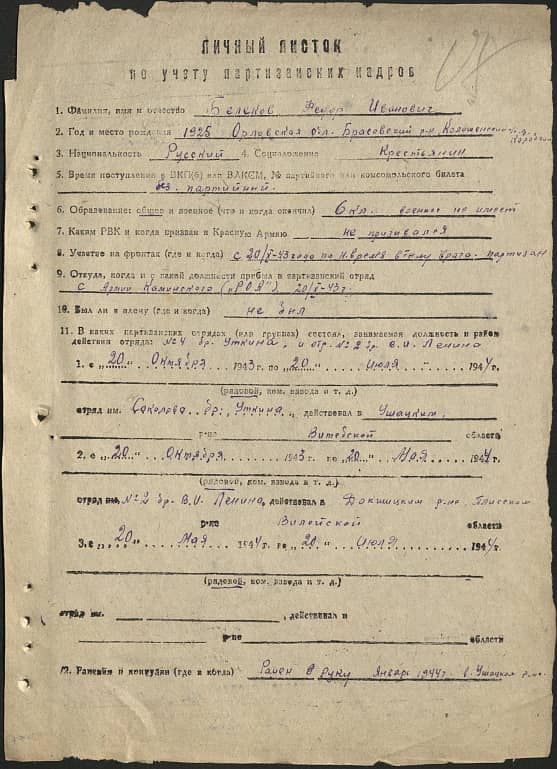 ЛИЧНЫЙ ЛИСТОК
по учету партизанских кадров
1. Фамилия, имя и отчество Белоков Федор Иванович
2. Год и место рождения 1925 Орловская обл. Брасовский р-н,
3. Национальность Русский 4. Соцположение Крестьянин
5. Время поступления в ВКП(б) или ВЛКСМ, № партийного или комсомольского билета
без партийный
6. Образование: общее и военное (что и когда окончил) 6 кл. военное не имеет
7. Каким РВК и когда призван в Красную Армию не призывался
8. Участие на фронтах (где и когда) с 20/X-43 года по н.время в тылу врага. партизан
9. Откуда, когда и с какой должности прибыл в партизанский отряд
с Армии Каминского ("РОА"). 20/X-43г.
10. Был ли в плену (где и когда) не был
11. В каких партизанских отрядах (или группах) состоял, занимаемая должность и район
действия отряда: № 4 бр. Уткина, и отр. № 2 бр. В.И. Ленина
1. с „20“ Октября 1943 г. по „20“ Июля 1944 г.
(рядовой, ком. взвода и т. д.)
отряд им. Соколова бр. Уткина, действовал в Ушацким
р-не Витебской области
2. с „20“ Октября 1943 г. по „20“ Мая 1944 г.
(рядовой, ком. взвода и т. д.)
отряд им. № 2 бр. В.И. Ленина, действовал в Докшицким р-не, Плисском
р-не Вилейской области
3. с „20“ Мая 1944 г. по „20“ Июля 1944 г.
(рядовой, ком. взвода и т. д.)
отряд им. , действовал в
р-не области
12. Ранения и контузии (где и когда) Ранен в руку январь 1944 г. в Ушацком р-не.